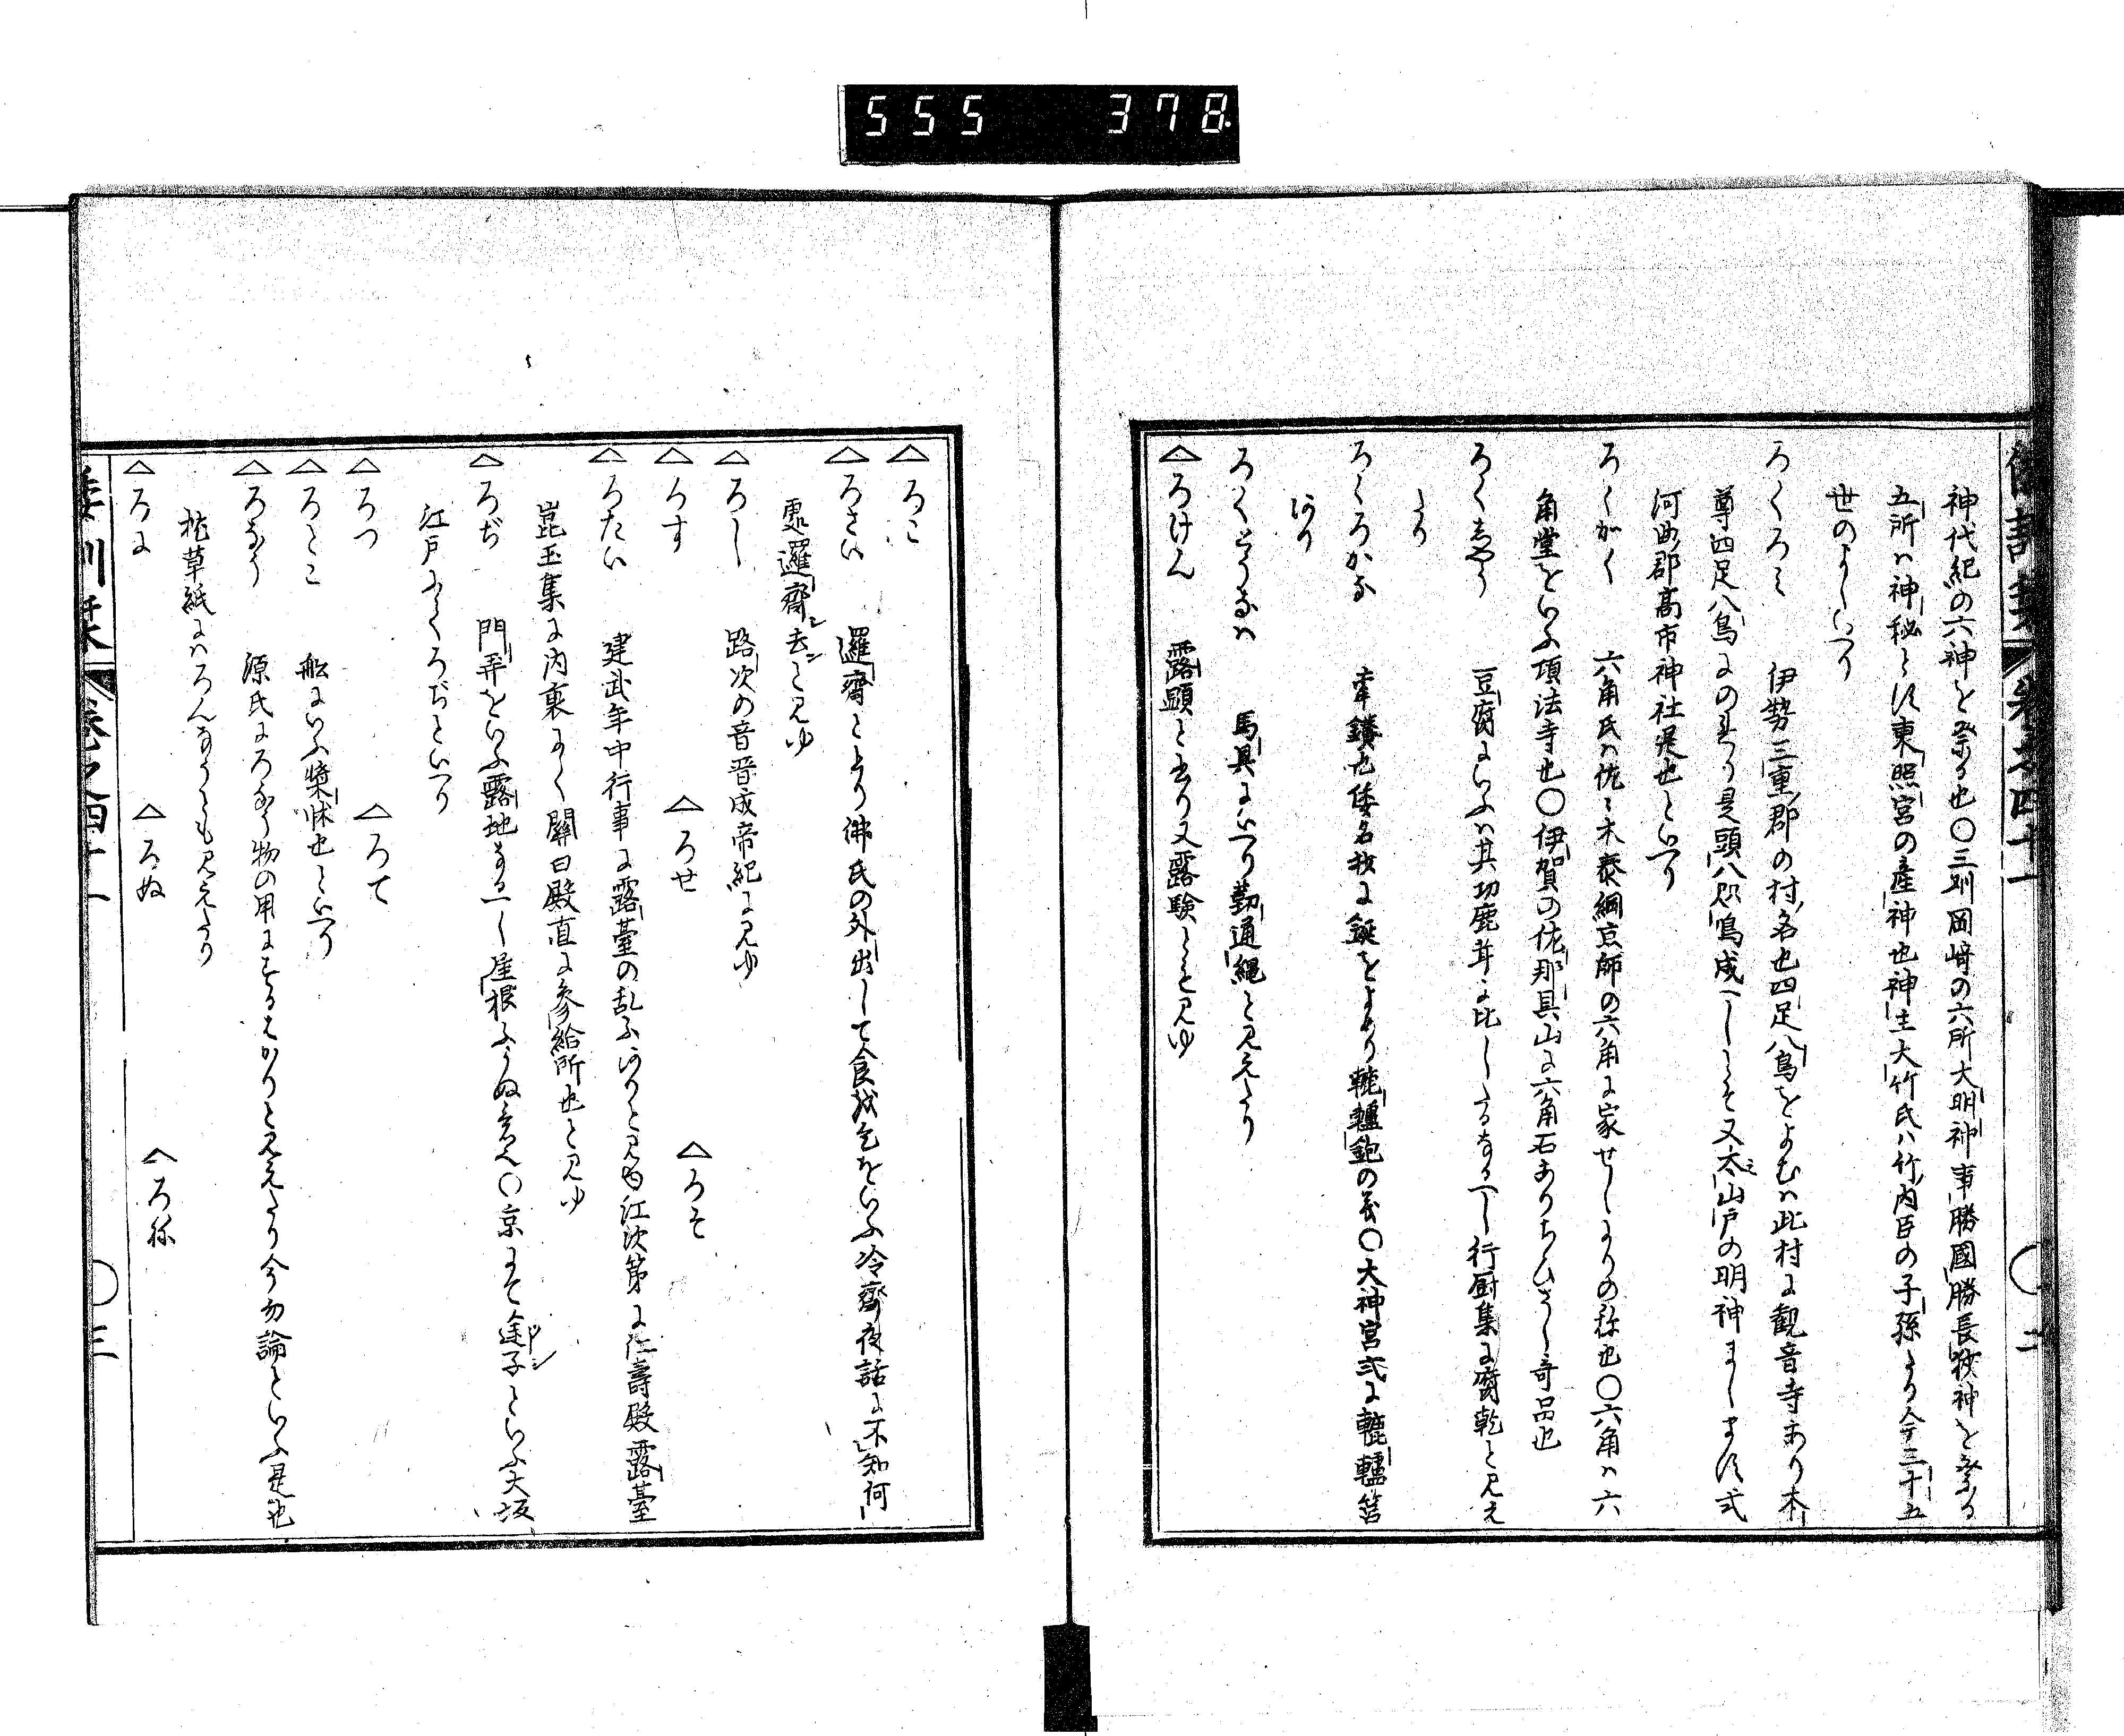 555 378
神代紀の六神を祭る也〇三州岡崎の六所大明神事勝國勝長狭神を祭る
五所ハ神秘とす東照宮の産神也神主大竹氏ハ竹内臣の子孫たり今三十五
世のよしいへり
ろくろみ 伊勢三重郡の村名也四足八鳥をよむハ此村に観音寺あり本
尊四足八鳥にのれり是頭八咫烏成へしとそ又太山戸の明神まします式
河曲郡高市神社是也といへり
ろくがく 六角氏ハ佐々木泰綱京師の六角に家せしよりの称也〇六角ハ六
角堂をいふ頂法寺也〇伊賀の佐那具山に六角石ありちひさし奇品也
ろくしやう 豆腐にいふハ其功鹿茸に比したるなるへし行厨集に腐乾と見え
たり
ろくろかな 牽鑽也倭名抄に鋋をよめり轆轤鉋の義〇大神宮式に轆轤筥
あり
ろくとうなハ 馬具にいへり勤通縄と見えたり
△ろけん 露顕と書り又露験とも見ゆ
△ろこ
△ろさい 邏齋と書り佛氏の外出して食を乞をいふ冷齋夜話に不知何
処邏齋シ去シと見ゆ
△ろし 路次の音晋成帝紀に見ゆ
△ろす △ろせ △ろそ
△ろたい 建武年中行事に露臺の乱ふありと見ゆ江次第に仁壽殿露臺
崑玉集に内裏にて關白殿直に参給所也と見ゆ
△ろぢ 門弄をいふ露地なるへし屋根ふかぬ意也〇京にて途子ドシといふ大坂
江戸にてろぢといへり
△ろつ △ろて
△ろとこ 船にいふ槳牀也といへり
△ろなう 源氏にろなう物の用にするはかりと見えたり今勿論といふ是也
枕草紙にハろんなうとも見えたり
△ろに △ろぬ △ろね
倭訓栞 巻之四十一 〇三